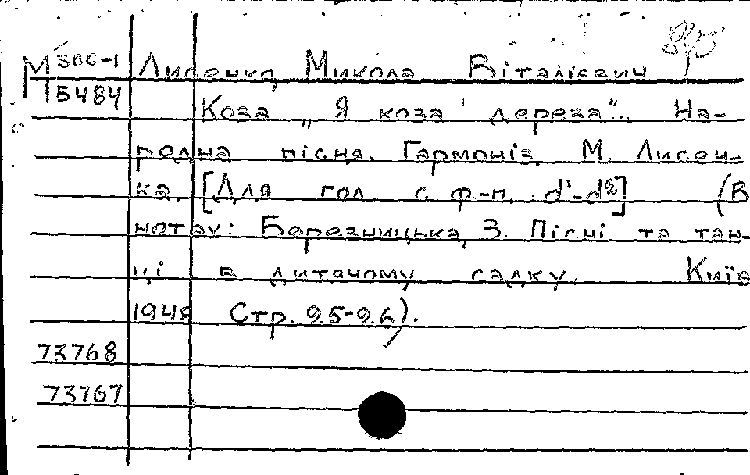 М 3вс-1 Лисенко, Микола Віталієвич
5484 Коза „Я коза дереза". На-
родна пісня. Гармоніз. М. Лисен-
ка. [Для гол. с ф-п. d¹-d²] (В
нотах: Березницька, З. Пісні та тан-
ці в дитячому садку. Київ
1948 Стр. 95-96).
73768
73767